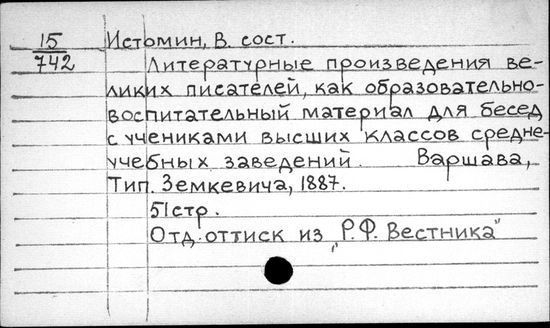 15 Истомин, В. сост.
742 Литературные произведения ве-
ликих писателей, как образовательно-
воспитательный материал для бесед
с учениками высших классов средне-
учебных заведений. Варшава,
Тип. Земкевича, 1887.
51 стр.
Отд. оттиск из „Р.Ф. Вестника"